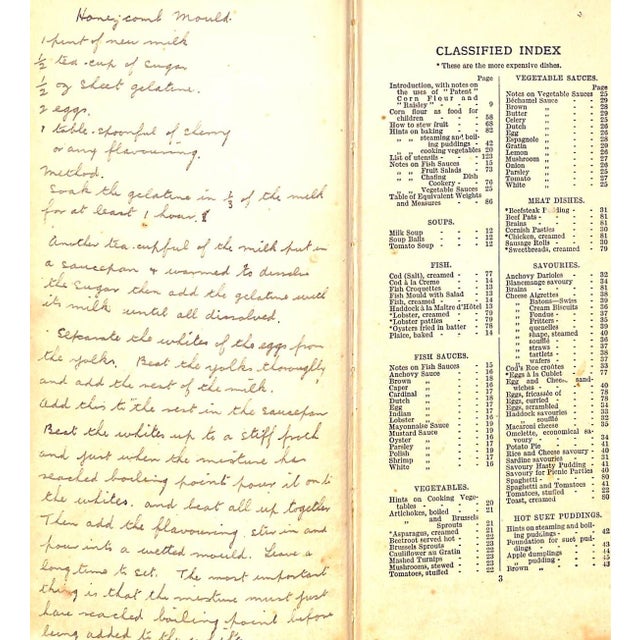 Honeycomb Mould.
1 pint of new milk
½ tea-cup of sugar
½ oz sheet gelatine.
2 eggs.
1 table-spoonful of sherry
or any flavouring.
Method.
Soak the gelatine in ⅓ of the milk
for at least 1 hour.
Another tea-cupful of the milk put in
a saucepan & warmed to dissolve
the sugar then add the gelatine with
its milk until all dissolved.
Separate the whites of the eggs from
the yolks. Beat the yolks thoroughly
and add the rest of the milk.
Add this to the rest in the saucepan
Beat the whites up to a stiff froth
and just when the mixture has
reached boiling point pour it on to
the whites. and beat all up together
Then add the flavouring stir in and
pour into a wetted mould. Leave a
long time to set. The most important
thing is that the mixture must just
have reached boiling-point before
being added to the
CLASSIFIED INDEX
* These are the more expensive dishes.
Page
Introduction, with notes on
the uses of "Patent"
Corn Flour and
"Raisley" - - - 9
Corn flour as food for
children - - - 58
How to stew fruit - - 68
Hints on baking - - 82
„ „ steaming and boil-
ing puddings - - 42
„ „ cooking vegetables 20
List of utensils - - 123
Notes on Fish Sauces - 15
„ „ Fruit Salads - 73
„ „ Chafing Dish
Cookery - - 76
„ „ Vegetable Sauces 25
Table of Equivalent Weights
and Measures - - - 86
SOUPS.
Milk Soup - - - 12
Soup Balls - - - 12
Tomato Soup - - - 12
FISH.
Cod (Salt), creamed - - 77
Cod à la Crème - - 14
Fish Croquettes - - 13
Fish Mould with Salad - 13
Fish, creamed - - - 14
Haddock à la Maître d'Hôtel 13
*Lobster, creamed - - 79
*Lobster patties - - 79
*Oysters fried in batter - 78
Plaice, baked - - - 14
FISH SAUCES.
Notes on Fish Sauces - 15
Anchovy Sauce - - 16
Brown „ - - 18
Caper „ - - 16
Cardinal „ - - 17
Dutch „ - - 18
Egg „ - - 17
Indian „ - - 17
Lobster „ - - 16
Mayonnaise Sauce - - 19
Mustard Sauce - - 19
Oyster „ - - 16
Parsley „ - - 17
Polish „ - - 19
Shrimp „ - - 17
White „ - - 16
VEGETABLES.
Hints on Cooking Vege-
tables - - - 20
Artichokes, boiled - - 21
„ and Brussels
Sprouts - - 21
*Asparagus, creamed - 21
Beetroot served hot - - 22
Brussels Sprouts - - 21
Cauliflower au Gratin - 22
Mashed Turnips - - 23
Mushrooms, stewed - - 22
Tomatoes, stuffed - - 22
VEGETABLE SAUCES.
Page
Notes on Vegetable Sauces 25
Béchamel Sauce - - 29
Brown „ - - 28
Butter „ - - 29
Celery „ - - 25
Dutch „ - - 26
Egg „ - - 26
Espagnole „ - - 28
Gratin „ - - 29
Lemon „ - - 26
Mushroom „ - - 27
Onion „ - - 26
Parsley „ - - 25
Tomato „ - - 27
White „ - - 25
MEAT DISHES.
*Beefsteak Pudding - - 31
Beef Pats - - - 81
Brains - - - 81
Cornish Pasties - - 30
*Chicken, creamed - - 81
Sausage Rolls - - 30
*Sweetbreads, creamed - 79
SAVOURIES.
Anchovy Darioles - - 32
Blancmange savoury - 34
Brains - - - 81
Cheese Aigrettes - - 38
„ Batons—Swiss 39
„ Cream Biscuits 36
„ Fondue - - 37
„ Fritters - - 35
„ quenelles - 39
„ shape, steamed 40
„ soufflé - - 36
„ straws - - 37
„ tartlets - - 38
„ wafers - - 37
Cod's Roe croûtes - - 33
*Eggs à la Cublet - - 77
Egg and Cheese sand-
wiches - - - 40
Eggs, fricasée of - - 78
Eggs, curried - - 78
Eggs, scrambled - - 34
Haddock savouries - - 33
„ soufflé - - 32
Macaroni cheese - - 35
Omelette, economical sa-
voury - - - 34
Potato Pie - - - 41
Rice and Cheese savoury - 40
Sardine savouries - - 31
Savoury Hasty Pudding - 41
Savoury for Picnic Parties 40
Spaghetti - - - 80
Spaghetti and Tomatoes - 41
Tomatoes, stuffed - - 22
Toast, creamed - - 80
HOT SUET PUDDINGS.
Hints on steaming and boil-
ing puddings - - 42
Foundation for suet pud-
dings - - - 43
Apple dumplings - - 44
„ pudding - - 45
Brown „ - - 43
3